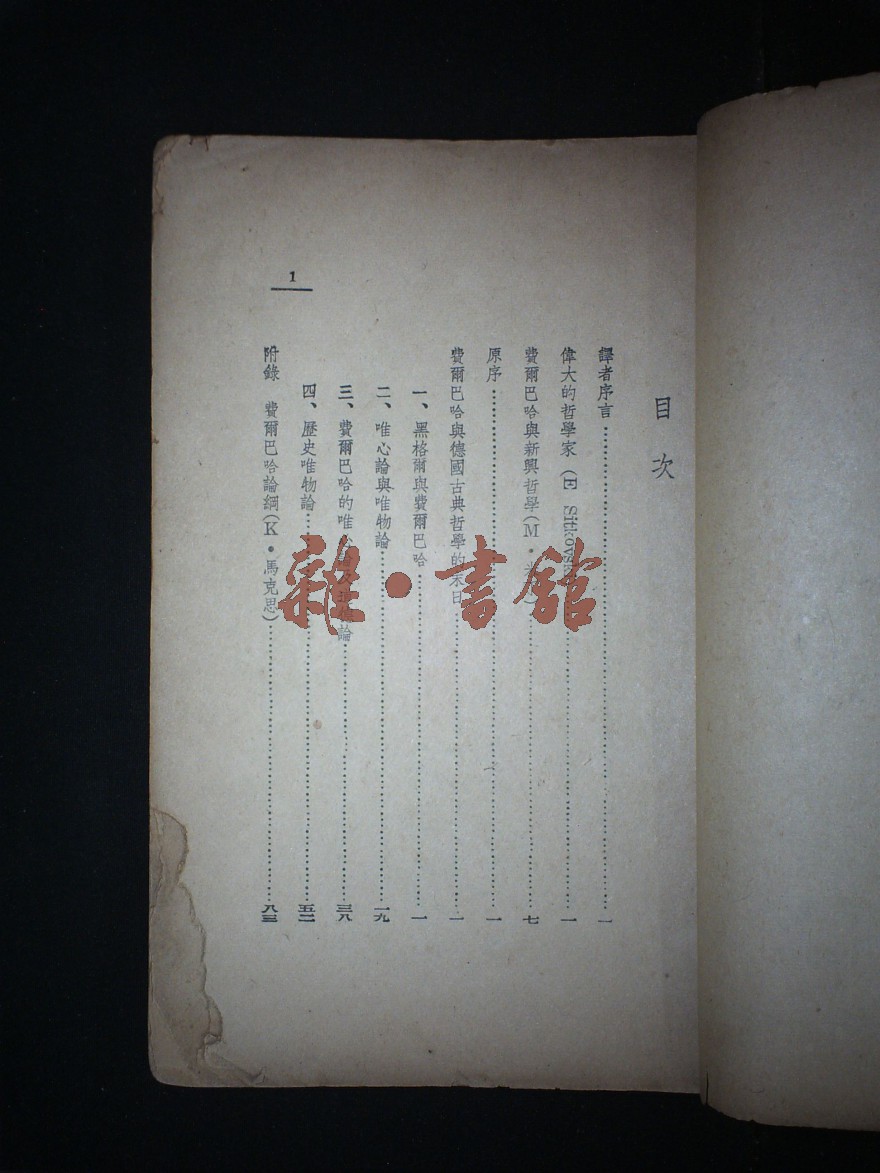 目次
譯者序言……一
偉大的哲學家（E Sitkovs……一
費爾巴哈與新興哲學（M・……七
原序……一
費爾巴哈與德國古典哲學的末日……一
一、黑格爾與費爾巴哈……一
二、唯心論與唯物論……一九
三、費爾巴哈的唯……論……三八
四、歷史唯物論……五二
附錄 費爾巴哈論綱（K・馬克思）……八三
1
雜・書館